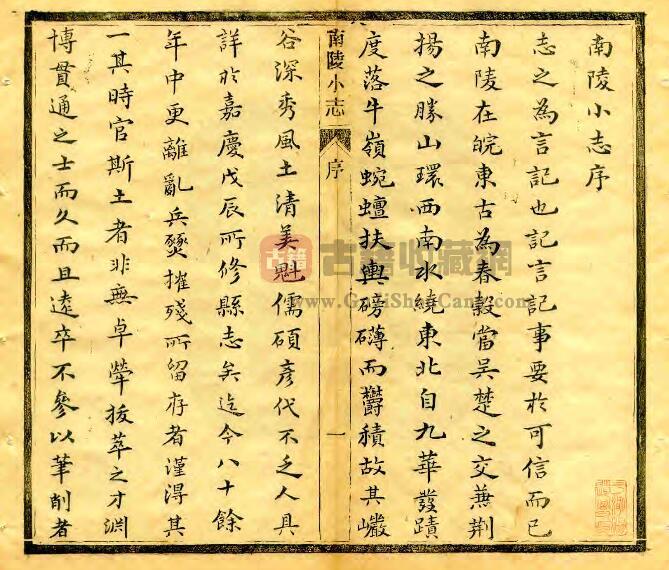 南陵小志序
志之為言記也記言記事要於可信而已
南陵在皖東古為春穀當吴楚之交兼荆
揚之勝山環西南水繞東北自九華發蹟
度落牛嶺蜿蟺扶輿磅礴而欝積故其巖
南陵小志
序
一
谷深秀風土清美魁儒碩彥代不乏人具
詳於嘉慶戊辰所修縣志矣迄今八十餘
年中更離亂兵燹摧殘所留存者僅得其
一其時官斯土者非無卓犖拔萃之才淵
博貫通之士而久而且遠卒不參以筆削者
古籍
古籍收藏網
www.GuJiShouCang.Com